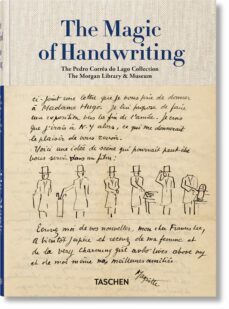 The Magic
of Handwriting
The Pedro Corrêa do Lago Collection
The Morgan Library & Museum
ci-joint une lettre que je vous prie de donner
à Madame Hugo. Je lui propose de faire
une exposition vers la fin de l'année. Je crois
que j'irais à N.Y. alors, ce qui me donnerait
le plaisir de vous revoir.
Voici une idée de scène qui pourrait peut-être
vous servir dans un film:
Ecrivez moi de vos nouvelles, mon cher
A bientôt j'espère et recevez de ma femme et
de la very charming girl who lives above my
et de moi même mes meilleures amitiés
Magritte
TASCHEN
TASCHEN